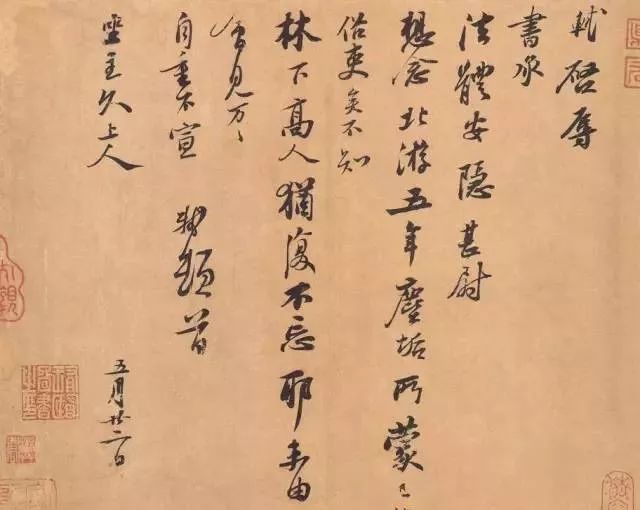 軾啓辱
書承
法體安隱甚尉
想念北游五年塵垢所蒙已
俗吏矣不知
林下高人猶復不忘耶未由
會見万〻
自重不宣
軾頓首
坐主久上人
五月廿二日